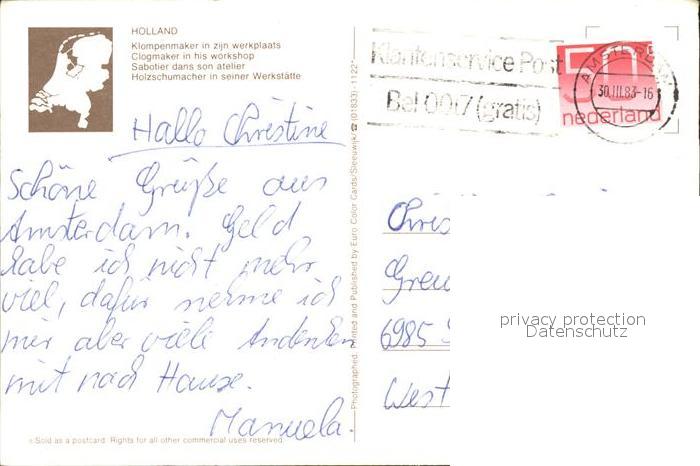 HOLLAND
Klompenmaker in zijn werkplaats
Clogmaker in his workshop
Sabotier dans son atelier
Holzschumacher in seiner Werkstätte
Hallo Christine
Schöne Grüße aus
Amsterdam. Geld
habe ich nicht mehr
viel, dafür nehme ich
mir aber viele Andenken
mit nach Hause.
Manuela.
Sold as a postcard. Rights for all other commercial uses reserved.
Photographed, Printed and Published by Euro Color Cards/Sleeuwijk/☎ (01833)-1122*
Klantenservice Post
Bel 0017 (gratis)
50
nederland
AMSTERDAM
30.III.83-16
Chris
Greu
6985
West
privacy protection
Datenschutz